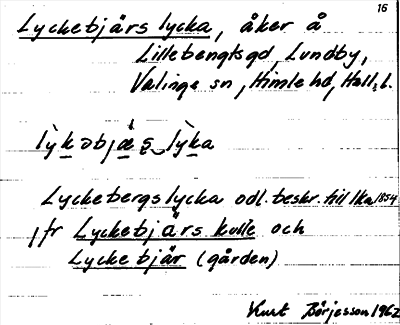 16
Lyckebjärs lycka, åker å
Lillebengtsgd, Lundby,
Valinge sn, Himle hd, Hall. l.
lỳkobjæ̀s lỳka
Lyckebergslycka odl. beskr. till lka 1854
jfr Lyckebjärs kulle och
Lyckebjär (gården)
Kurt Börjesson 1962